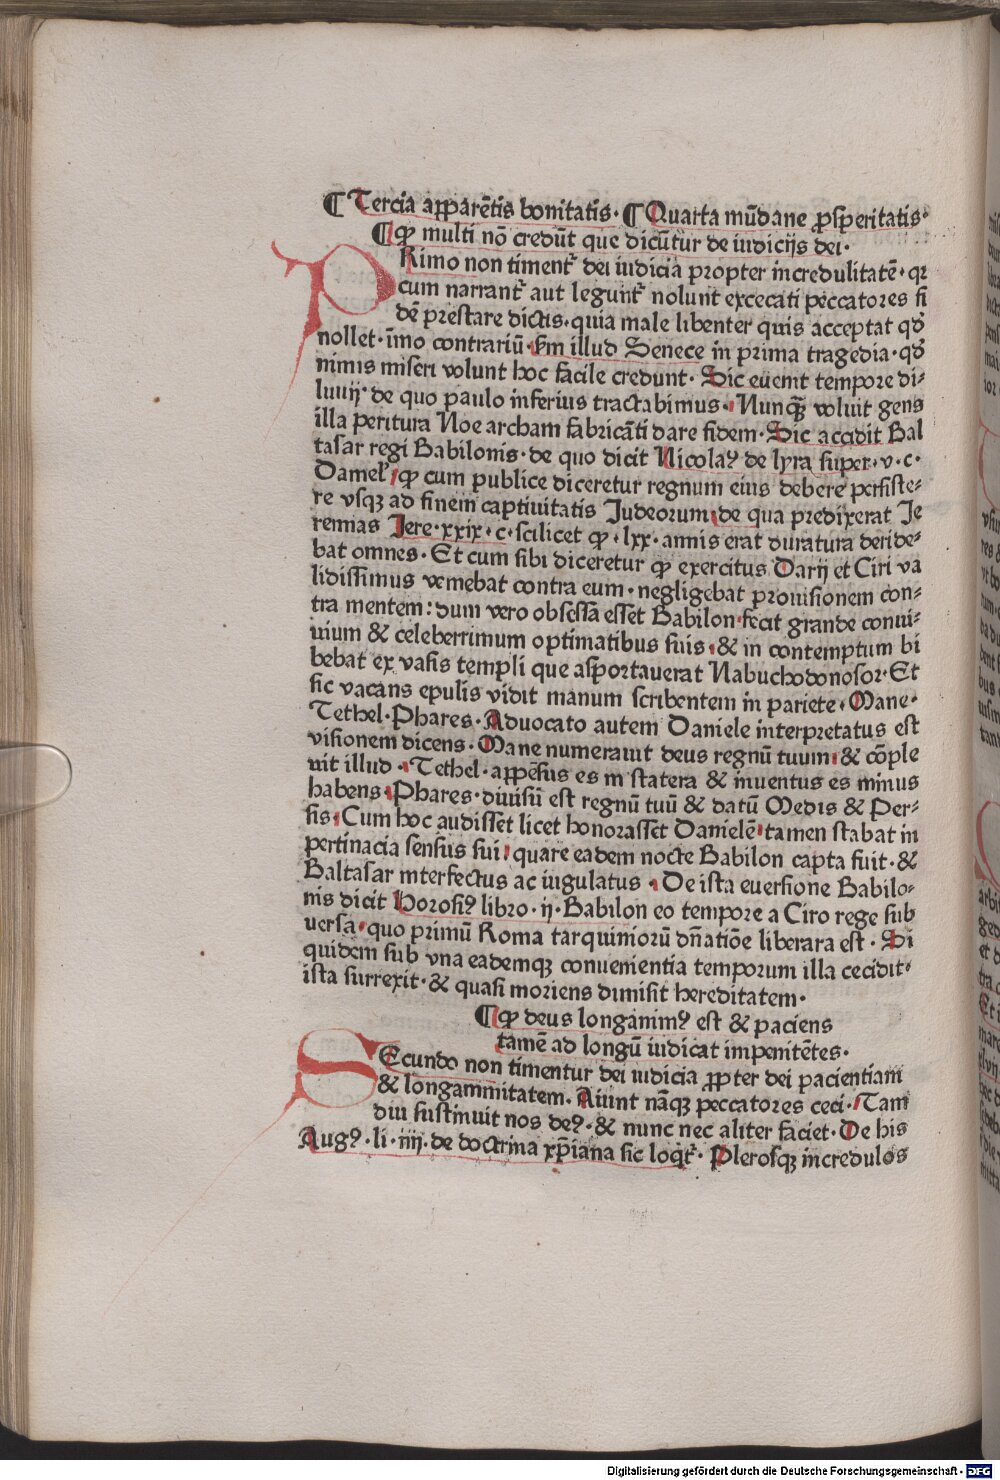 ¶ Tercia apparẽtis bonitatis· ¶ Quarta mũdane ꝓsperitatis·
¶ ꝙ multi nõ credũt que dicũtur de iudicijs dei·
PRimo non timentᷣ dei iudicia propter incredulitatẽ· qꝛ
cum narrantᷣ aut leguntᷣ nolunt excecati peccatores fi
dẽ prestare dictis· quia male libenter quis acceptat qd̛
nollet· ĩmo contrariũ· ẜm illud Senece in prima tragedia· qd̛
nimis miseri volunt hoc facile credunt· Sic euenit tempore di⸗
luuij· de quo paulo inferius tractabimus· Nunqͣꝫ voluit gens
illa peritura Noe archam fabricãti dare fidem· Sic accidit Bal
tasar regi Babilonis· de quo dicit Nicolaꝰ de lyra super· v· c·
Danielꝭ ꝙ cum publice diceretur regnum eius debere persiste⸗
re vsqꝫ ad finem captiuitatis Judeorum· de qua predixerat Je
remias Jere· xxix· c· scilicet ꝙ· lxx· annis erat duratura deride⸗
bat omnes· Et cum sibi diceretur ꝙ exercitus Darij et Ciri va
lidissimus veniebat contra eum· negligebat prouisionem con⸗
tra mentem: dum vero obsessa esset Babilon· fecit grande conui⸗
uium & celeberrimum optimatibus suis· & in contemptum bi
bebat ex vasis templi que asportauerat Nabuchodonosor· Et
sic vacans epulis vidit manum scribentem in pariete· Mane·
Tethel· Phares· Aduocato autem Daniele interpretatus est
visionem dicens· Mane numerauit deus regnũ tuum· & cõple
uit illud· Tethel· appẽsus es in statera & inuentus es minus
habens· Phares· diuisũ est regnũ tuũ & datũ Medis & Per⸗
sis· Cum hoc audisset licet honorasset Danielẽ· tamen stabat in
pertinacia sensus sui· quare eadem nocte Babilon capta fuit· &
Baltasar interfectus ac iugulatus· De ista euersione Babilo⸗
nis dicit Horosiꝰ libro· ij· Babilon eo tempore a Ciro rege sub
versa· quo primũ Roma tarquiniorũ dñatiõe liberara est· Si
quidem sub vna eademqꝫ conuenientia temporum illa cecidit·
ista surrexit· & quasi moriens dimisit hereditatem·
¶ ꝙ deus longanimꝰ est & paciens
tamẽ ad longũ iudicat impenitẽtes·
SEcundo non timentur dei iudicia ꝓpter dei pacientiam
& longanimitatem· Aiunt nãqꝫ peccatores ceci· Tam
diu sustinuit nos deꝰ· & nunc nec aliter faciet· De his
Augꝰ· li· iiij· de doctrina xp̃iana sic loqͥtᷣ· Plerosqꝫ incredulos
Digitalisierung gefördert durch die Deutsche Forschungsgemeinschaft - DFG